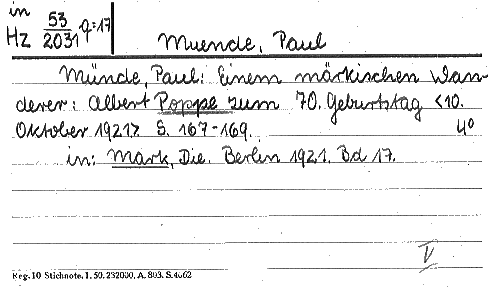 in
Hz 53/2031 q:17
Muende, Paul
Münde, Paul: Einem märkischen Wan-
derer: Albert Poppe zum 70. Geburtstag <10.
Oktober 1921> S. 167-169. 4°
in: Mark, Die. Berlin 1921. Bd 17.
V
Reg. 10 Stichnote. 1. 50. 232000. A. 803. S. 4062